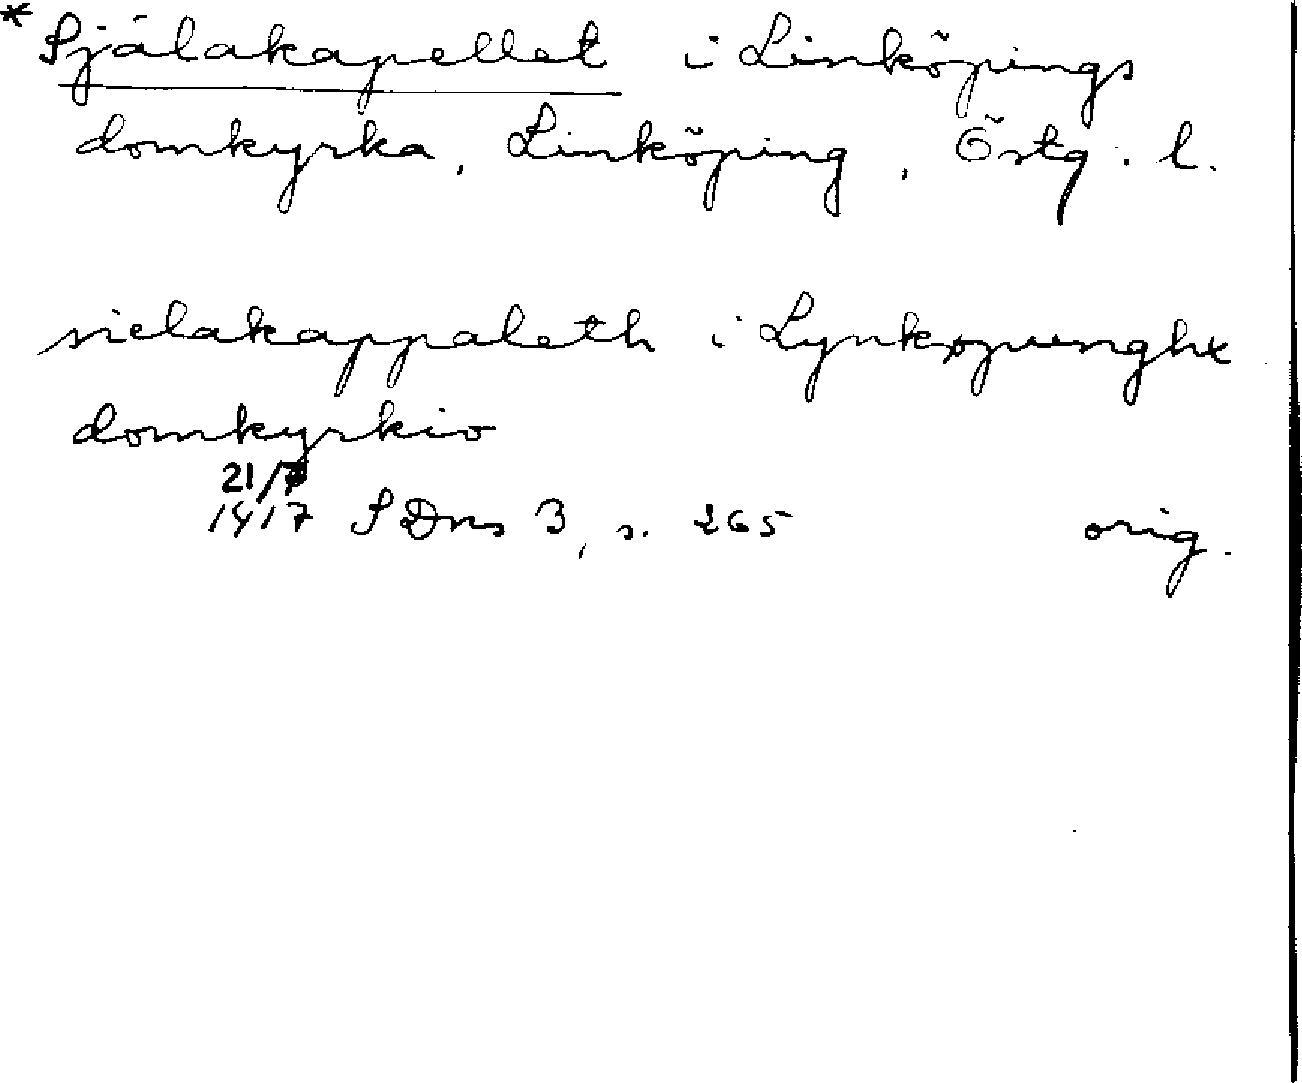 * Själakapellet i Linköpings
domkyrka, Linköping, Östg. l.
sielakappaleth i Lynkøpunghx
domkyrkio
21/7
1417 SDns 3, s. 265 orig.